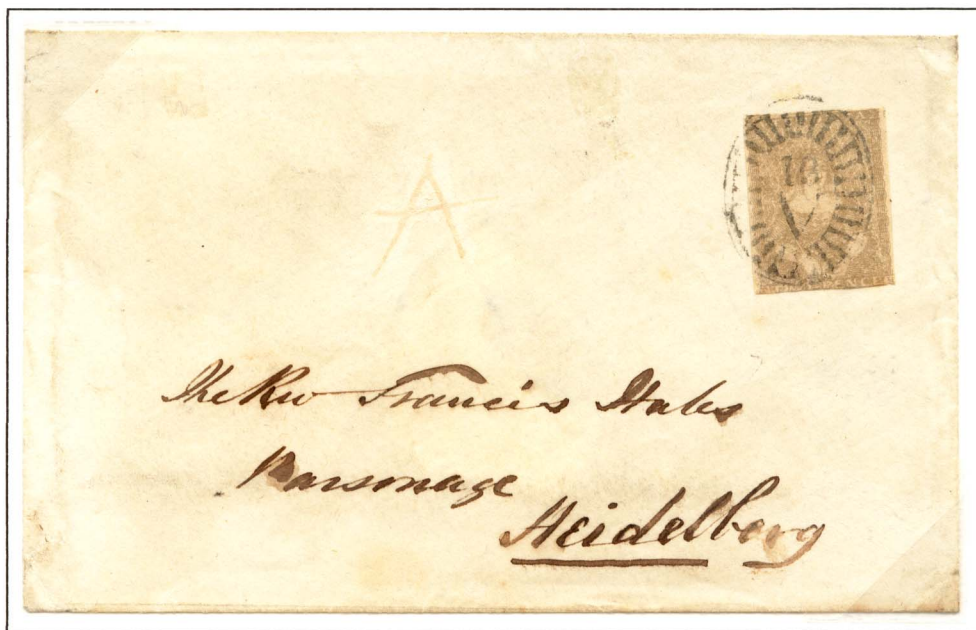 V
PENCE
A
The Rev Francis Hales
Parsonage
Heidelberg